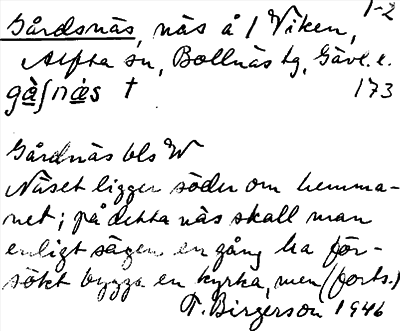 1-2
Gårdsnäs, näs å / Viken,
Alfta sn, Bollnäs tg, Gävl. l.
gàʃnæs † 173
Gårdnäs bls W
Näset ligger söder om hemma-
net; på detta näs skall man
enligt sägen en gång ha för-
sökt bygga en kyrka, men (forts.)
T. Birgerson 1946